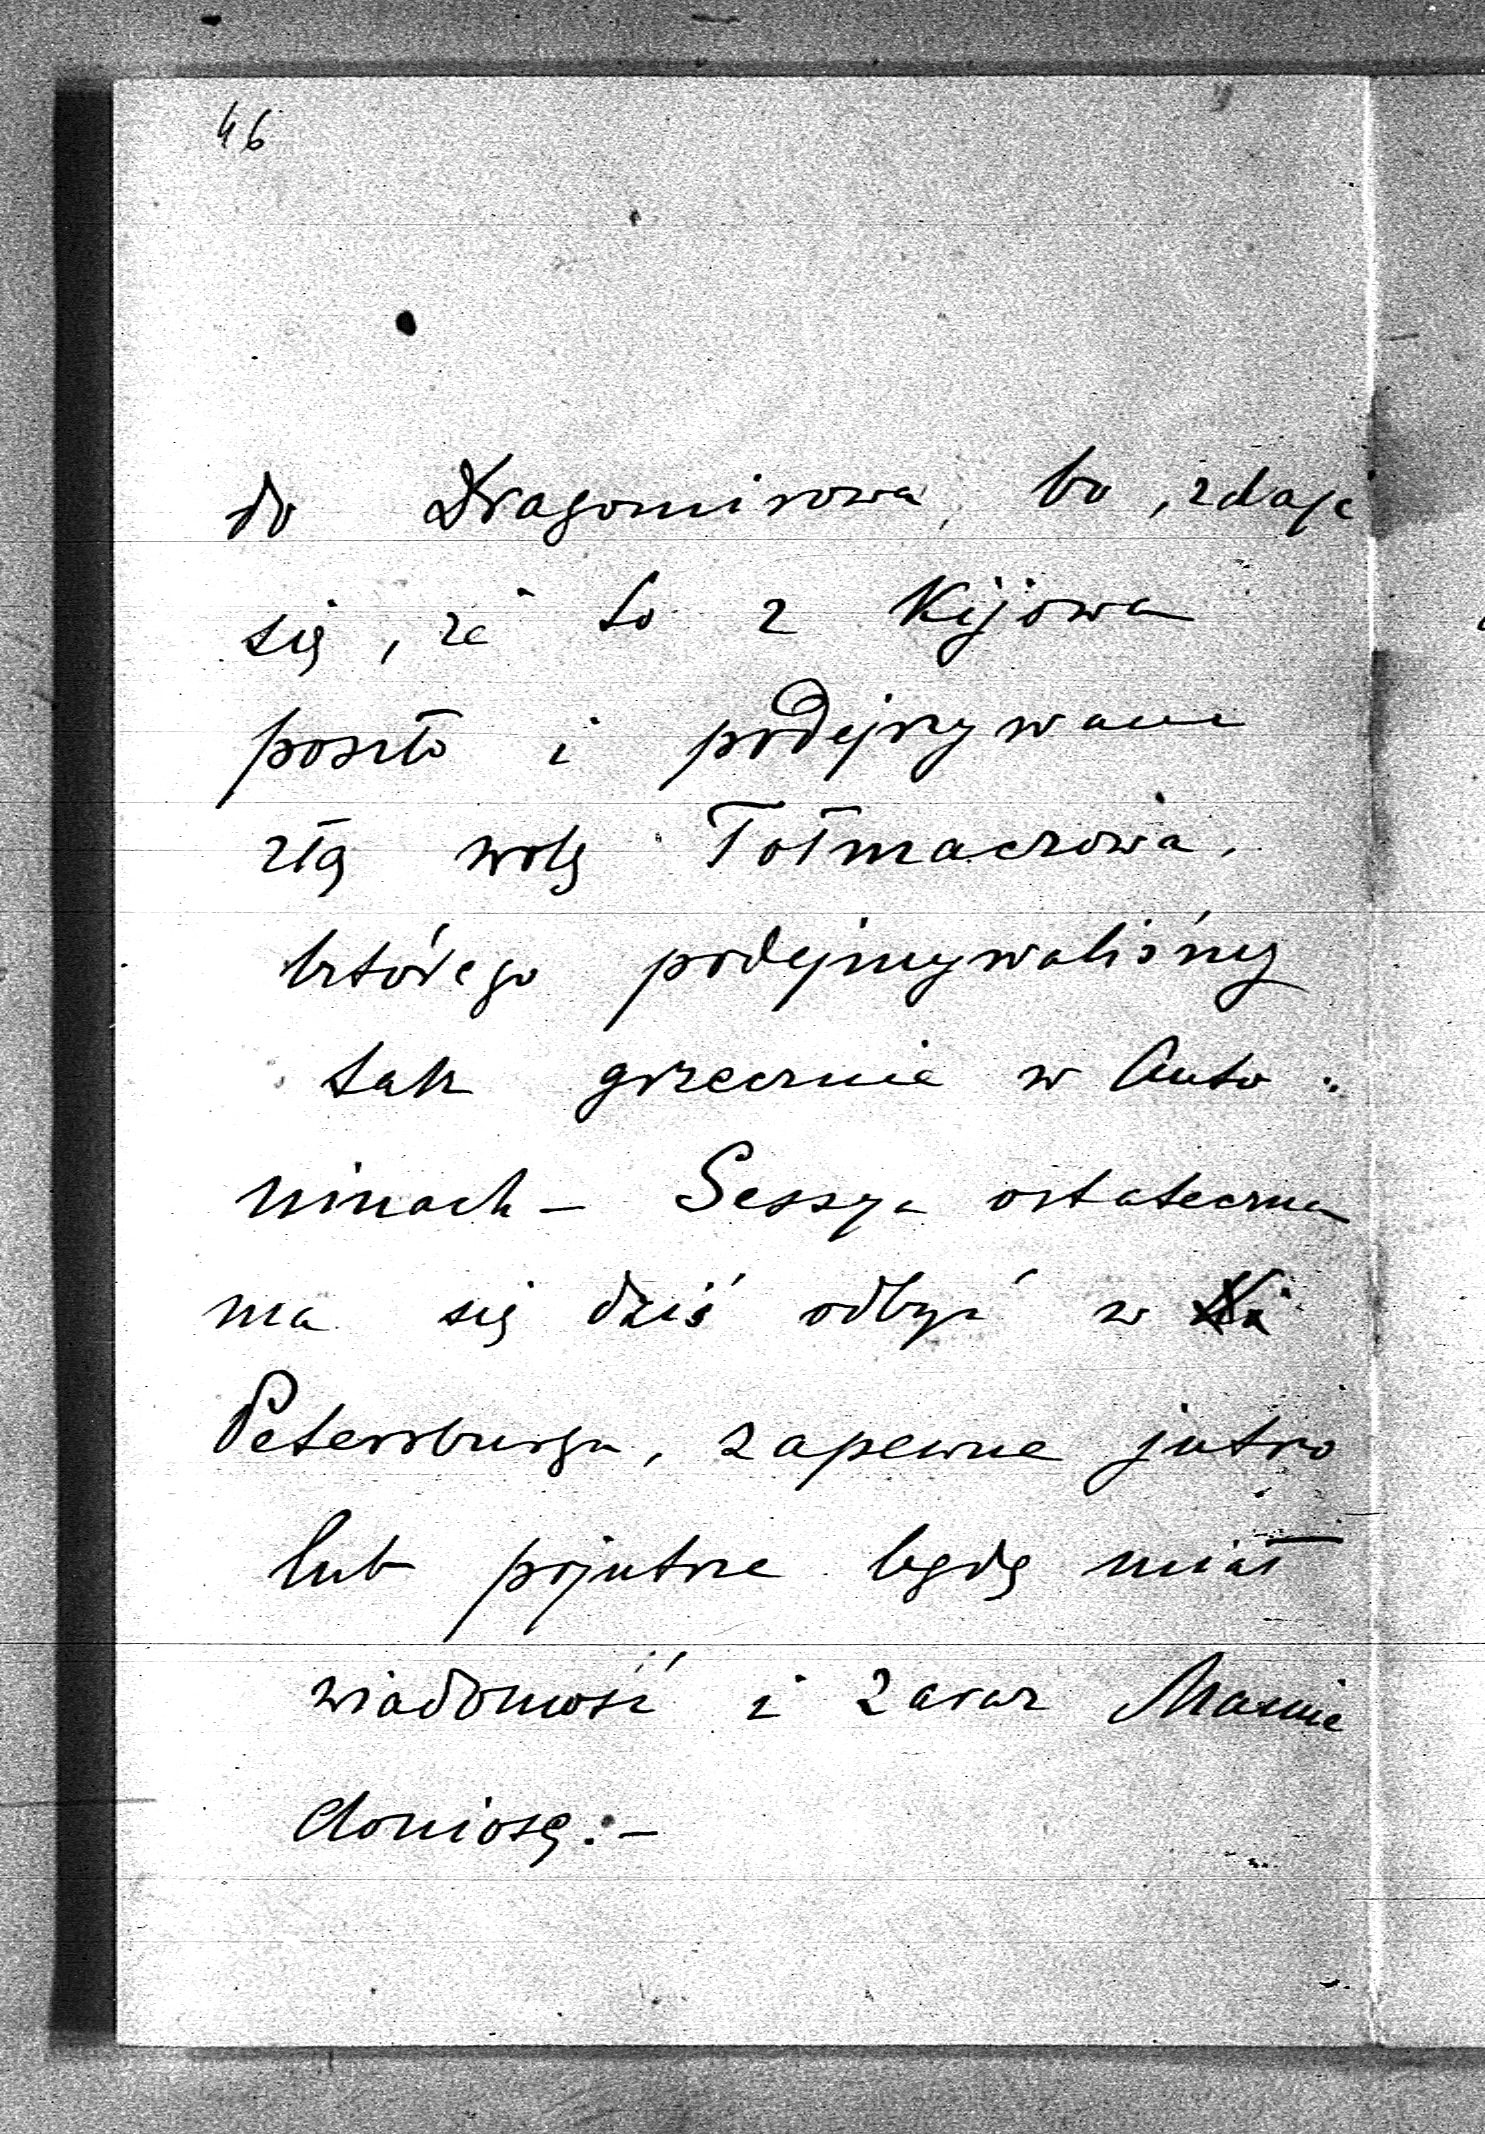 46
do Dragomirowa, bo, zdaje
się, że to z Kijowa
poszło i podejrzywam
złą wolę Tołmaczowa,
którego podejmywaliśmy
tak grzecznie w Anto:
ninach - Sessya ostateczna
ma się dziś odbyć w
Petersburgu, zapewne jutro
lub pojutrze będę miał
wiadomość i zaraz Mamie
doniosę.-